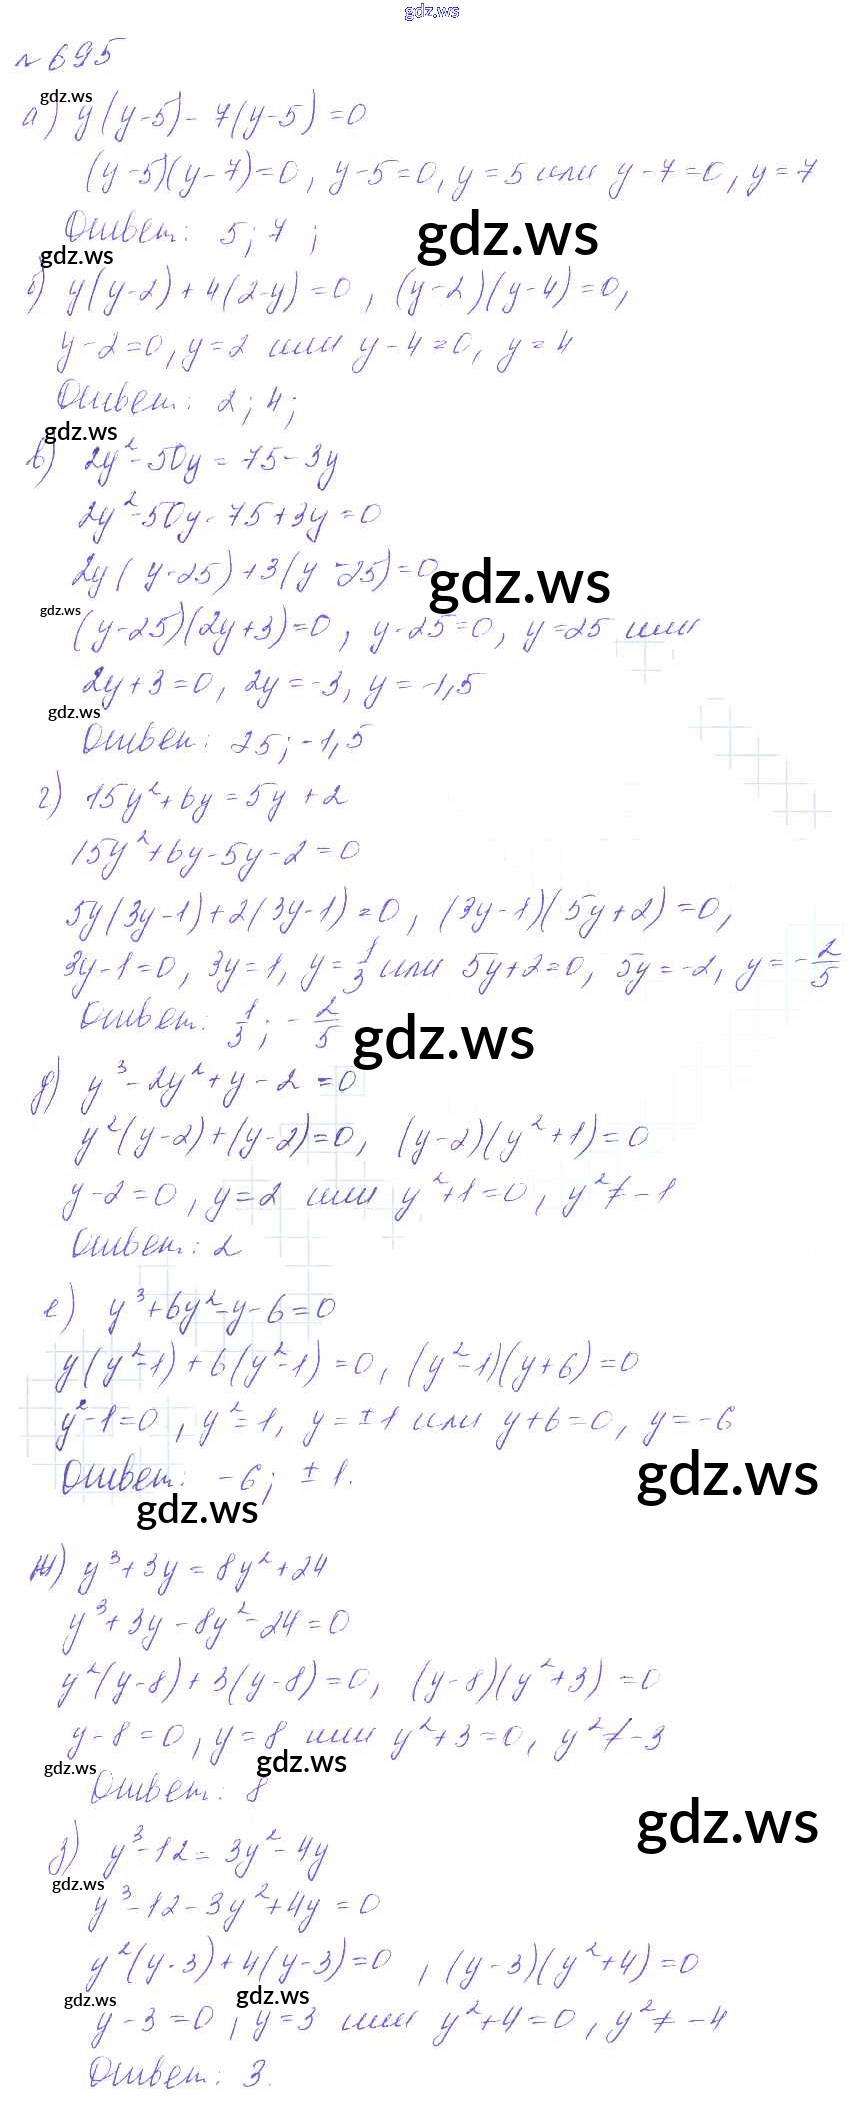 gdz.ws
№ 695
gdz.ws
а) y(y-5) - 7(y-5) = 0
(y-5)(y-7)=0, y-5=0, y=5 или y-7=0, y=7
Ответ: 5; 7 ;
gdz.ws
gdz.ws
б) y(y-2)+4(2-y)=0, (y-2)(y-4)=0,
y-2=0, y=2 или y-4=0, y=4
Ответ: 2; 4;
gdz.ws
в) 2y²-50y=75-3y
2y²-50y-75+3y=0
2y(y-25)+3(y-25)=0
gdz.ws
gdz.ws
(y-25)(2y+3)=0, y-25=0, y=25 или
2y+3=0, 2y=-3, y=-1,5
gdz.ws
Ответ: 25; -1,5
г) 15y²+6y=5y+2
15y²+6y-5y-2=0
5y(3y-1)+2(3y-1)=0, (3y-1)(5y+2)=0,
3y-1=0, 3y=1, y=1/3 или 5y+2=0, 5y=-2, y=-2/5
Ответ: 1/3; -2/5
gdz.ws
д) y³-2y²+y-2=0
y²(y-2)+(y-2)=0, (y-2)(y²+1)=0
y-2=0, y=2 или y²+1=0, y²≠-1
Ответ: 2
е) y³+6y²-y-6=0
y(y²-1)+6(y²-1)=0, (y²-1)(y+6)=0
y²-1=0, y²=1, y=±1 или y+6=0, y=-6
Ответ: -6; ±1.
gdz.ws
gdz.ws
ж) y³+3y=8y²+24
y³+3y-8y²-24=0
y²(y-8)+3(y-8)=0, (y-8)(y²+3)=0
y-8=0, y=8 или y²+3=0, y²≠-3
gdz.ws
gdz.ws
Ответ: 8
gdz.ws
з) y³-12=3y²-4y
gdz.ws
y³-12-3y²+4y=0
y²(y-3)+4(y-3)=0, (y-3)(y²+4)=0
gdz.ws
gdz.ws
y-3=0, y=3 или y²+4=0, y²≠-4
Ответ: 3.